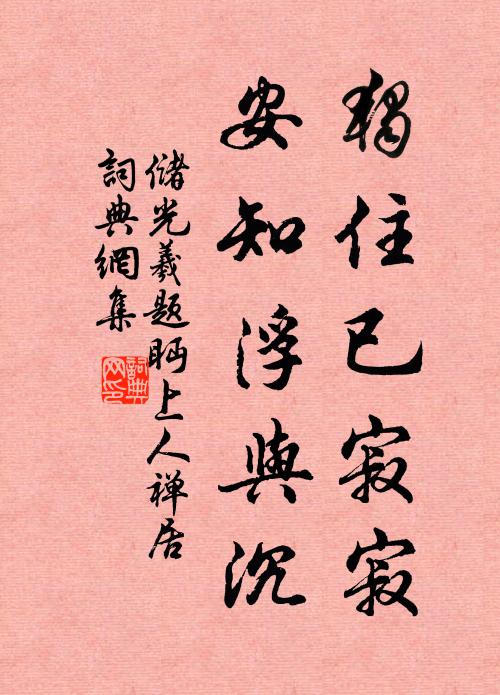 獨住已寂寂
安知浮與沉
儲光羲題眄上人禅居
詞典網集
詞典網印